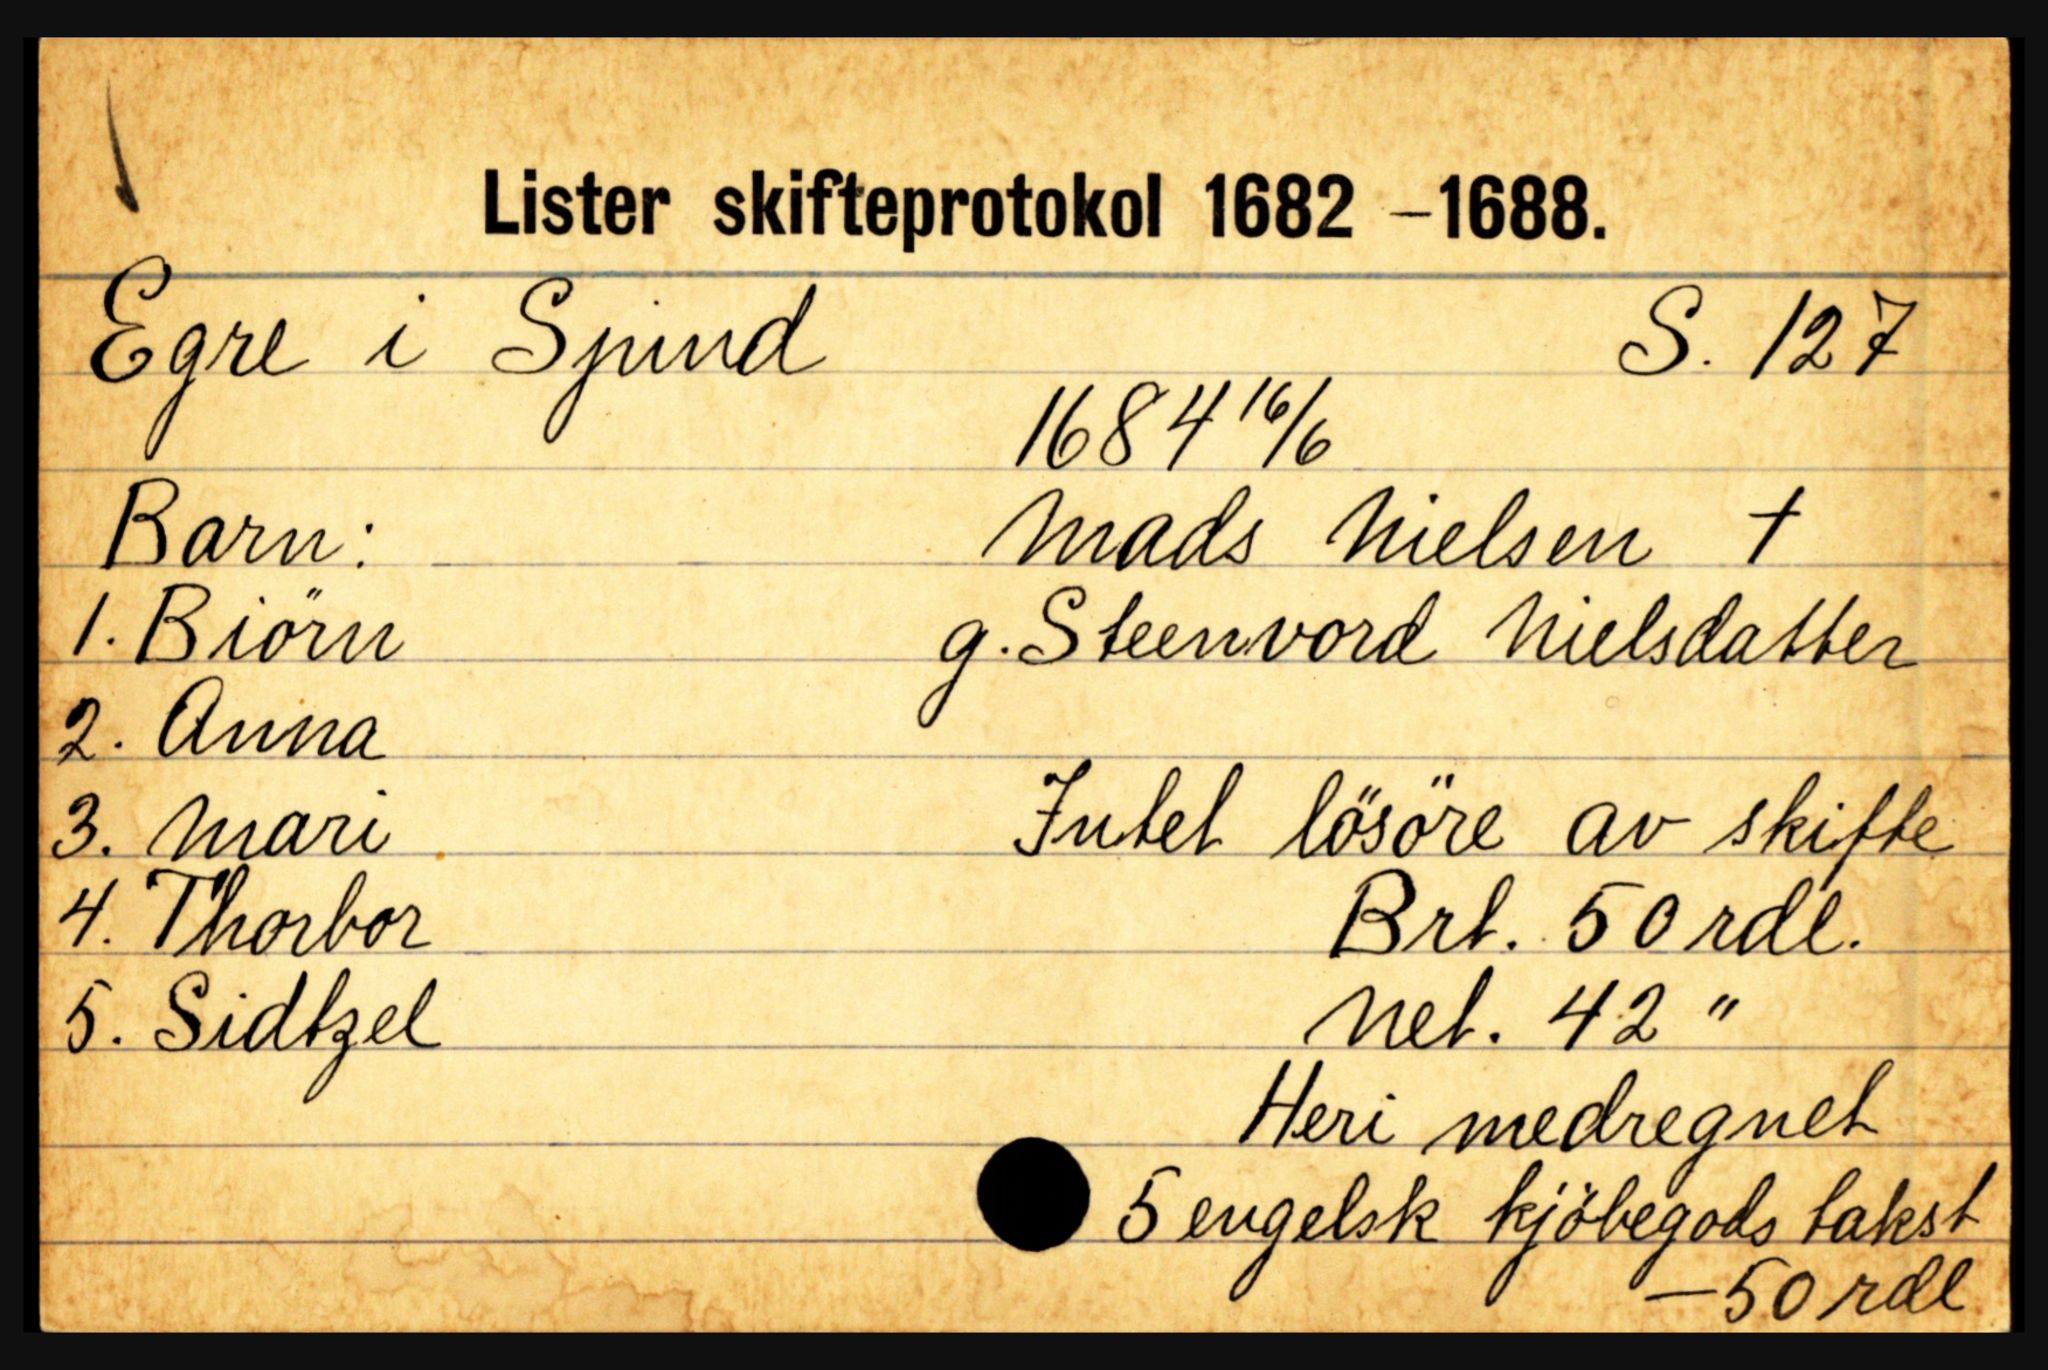 Lister skifteprotokol 1682 – 1688.
Egre i Spind S. 127
1684 16/6
Barn: Mads Nielsen †
1. Biörn g. Steenvord Nielsdatter
2. Anna
3. Mari Intet lösöre av skifte
4. Thorbor Brt. 50 rdl.
5. Sidtzel Net. 42 "
Heri medregnet
5 engelsk kjöbegods takst
– 50 rdl